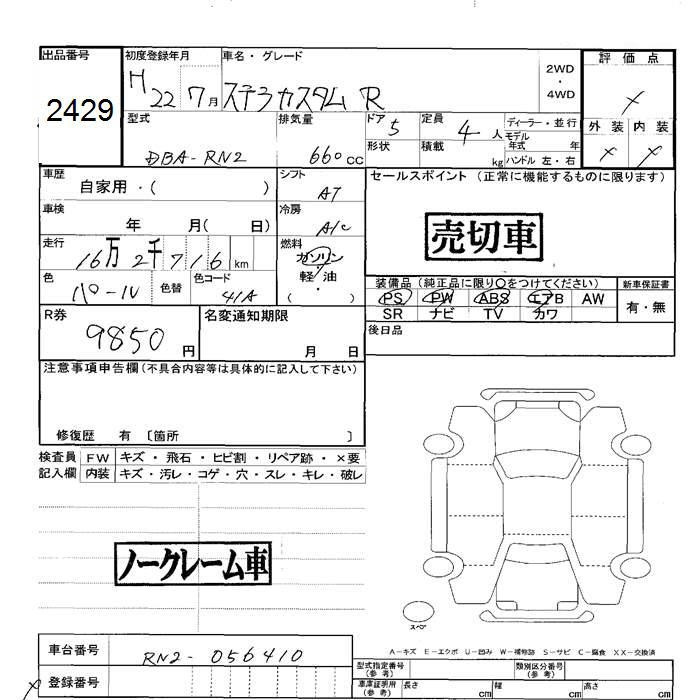 出品番号
2429
初度登録年月
H 22 7月
車名・グレード
ステラカスタム R
2WD
・
4WD
評価点
X
外装 内装
X X
型式
DBA-RN2
排気量
660cc
ドア 5
定員 4人
ディーラー・並行
モデル
年式 年
形状
積載 kg
ハンドル 左・右
車歴
自家用・( )
シフト
AT
セールスポイント (正常に機能するものに限ります)
売切車
車検
年 月( 日)
冷房
A/C
走行
16万2千716km
燃料
ガソリン
軽・油
・
( )
色
パール
色替
色コード
41A
装備品(純正品に限り○をつけてください)
新車保証書
PS PW ABS エアB AW
SR ナビ TV カワ
有・無
R券
9850円
名変通知期限
月 日
後日品
注意事項申告欄(不具合内容等は具体的に記入して下さい)
修復歴 有 〔箇所 〕
検査員 FW キズ・飛石・ヒビ割・リペア跡・×要
記入欄 内装 キズ・汚レ・コゲ・穴・スレ・キレ・破レ
ノークレーム車
スペア
A-キズ E-エクボ U-凹み W-補修跡 S-サビ C-腐食 XX-交換済
車台番号
RN2-056410
型式指定番号
(参考)
類別区分番号
(参考)
X 登録番号
車庫証明用
(参考)
長さ cm 幅 cm 高さ cm